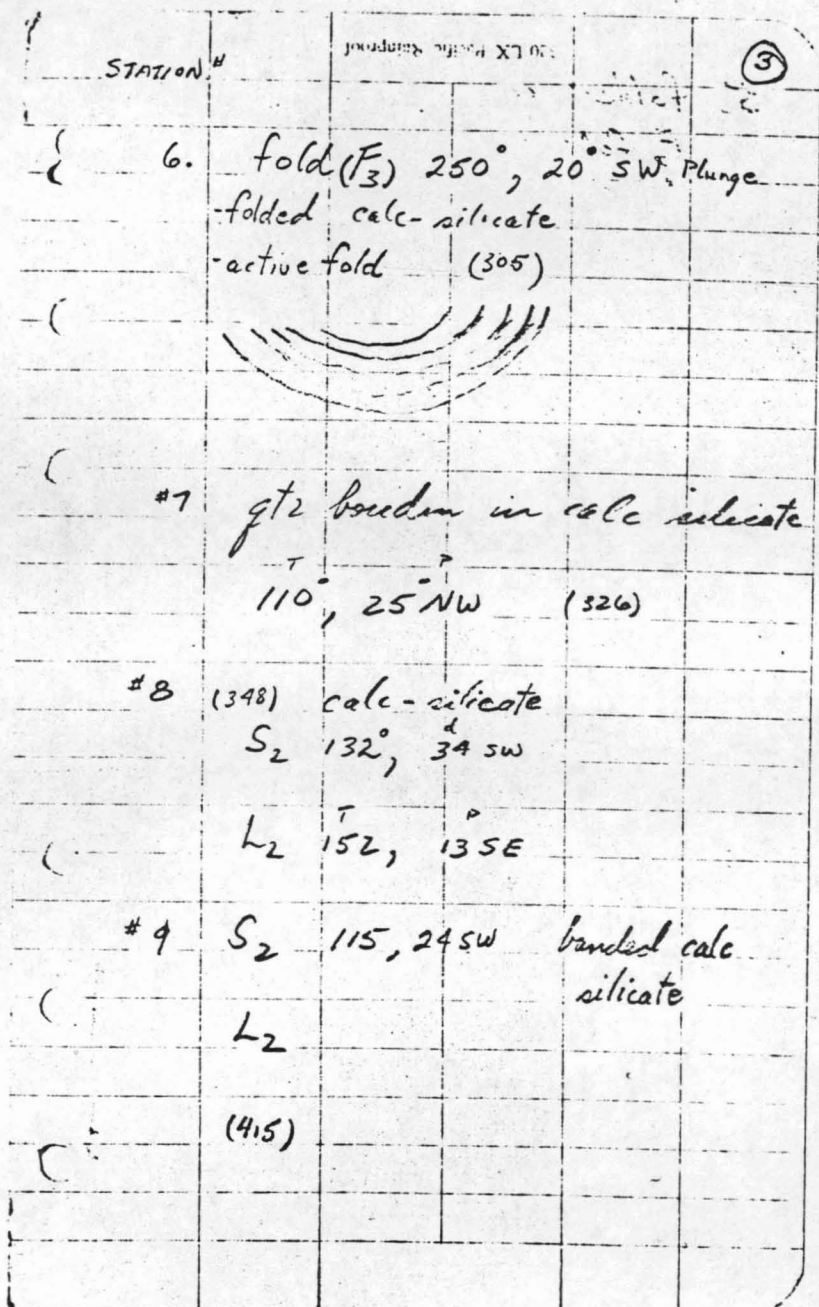 3
STATION #
6. fold (F3) 250°, 20° SW, Plunge
-folded calc-silicate
-active fold (305)
#7 qtz boudin in calc silicate
T P
110°, 25° NW (326)
#8 (348) calc-silicate
d
S2 132°, 34 SW
T P
L2 152, 13 SE
#9 S2 115, 24 SW banded calc
silicate
L2
(415)